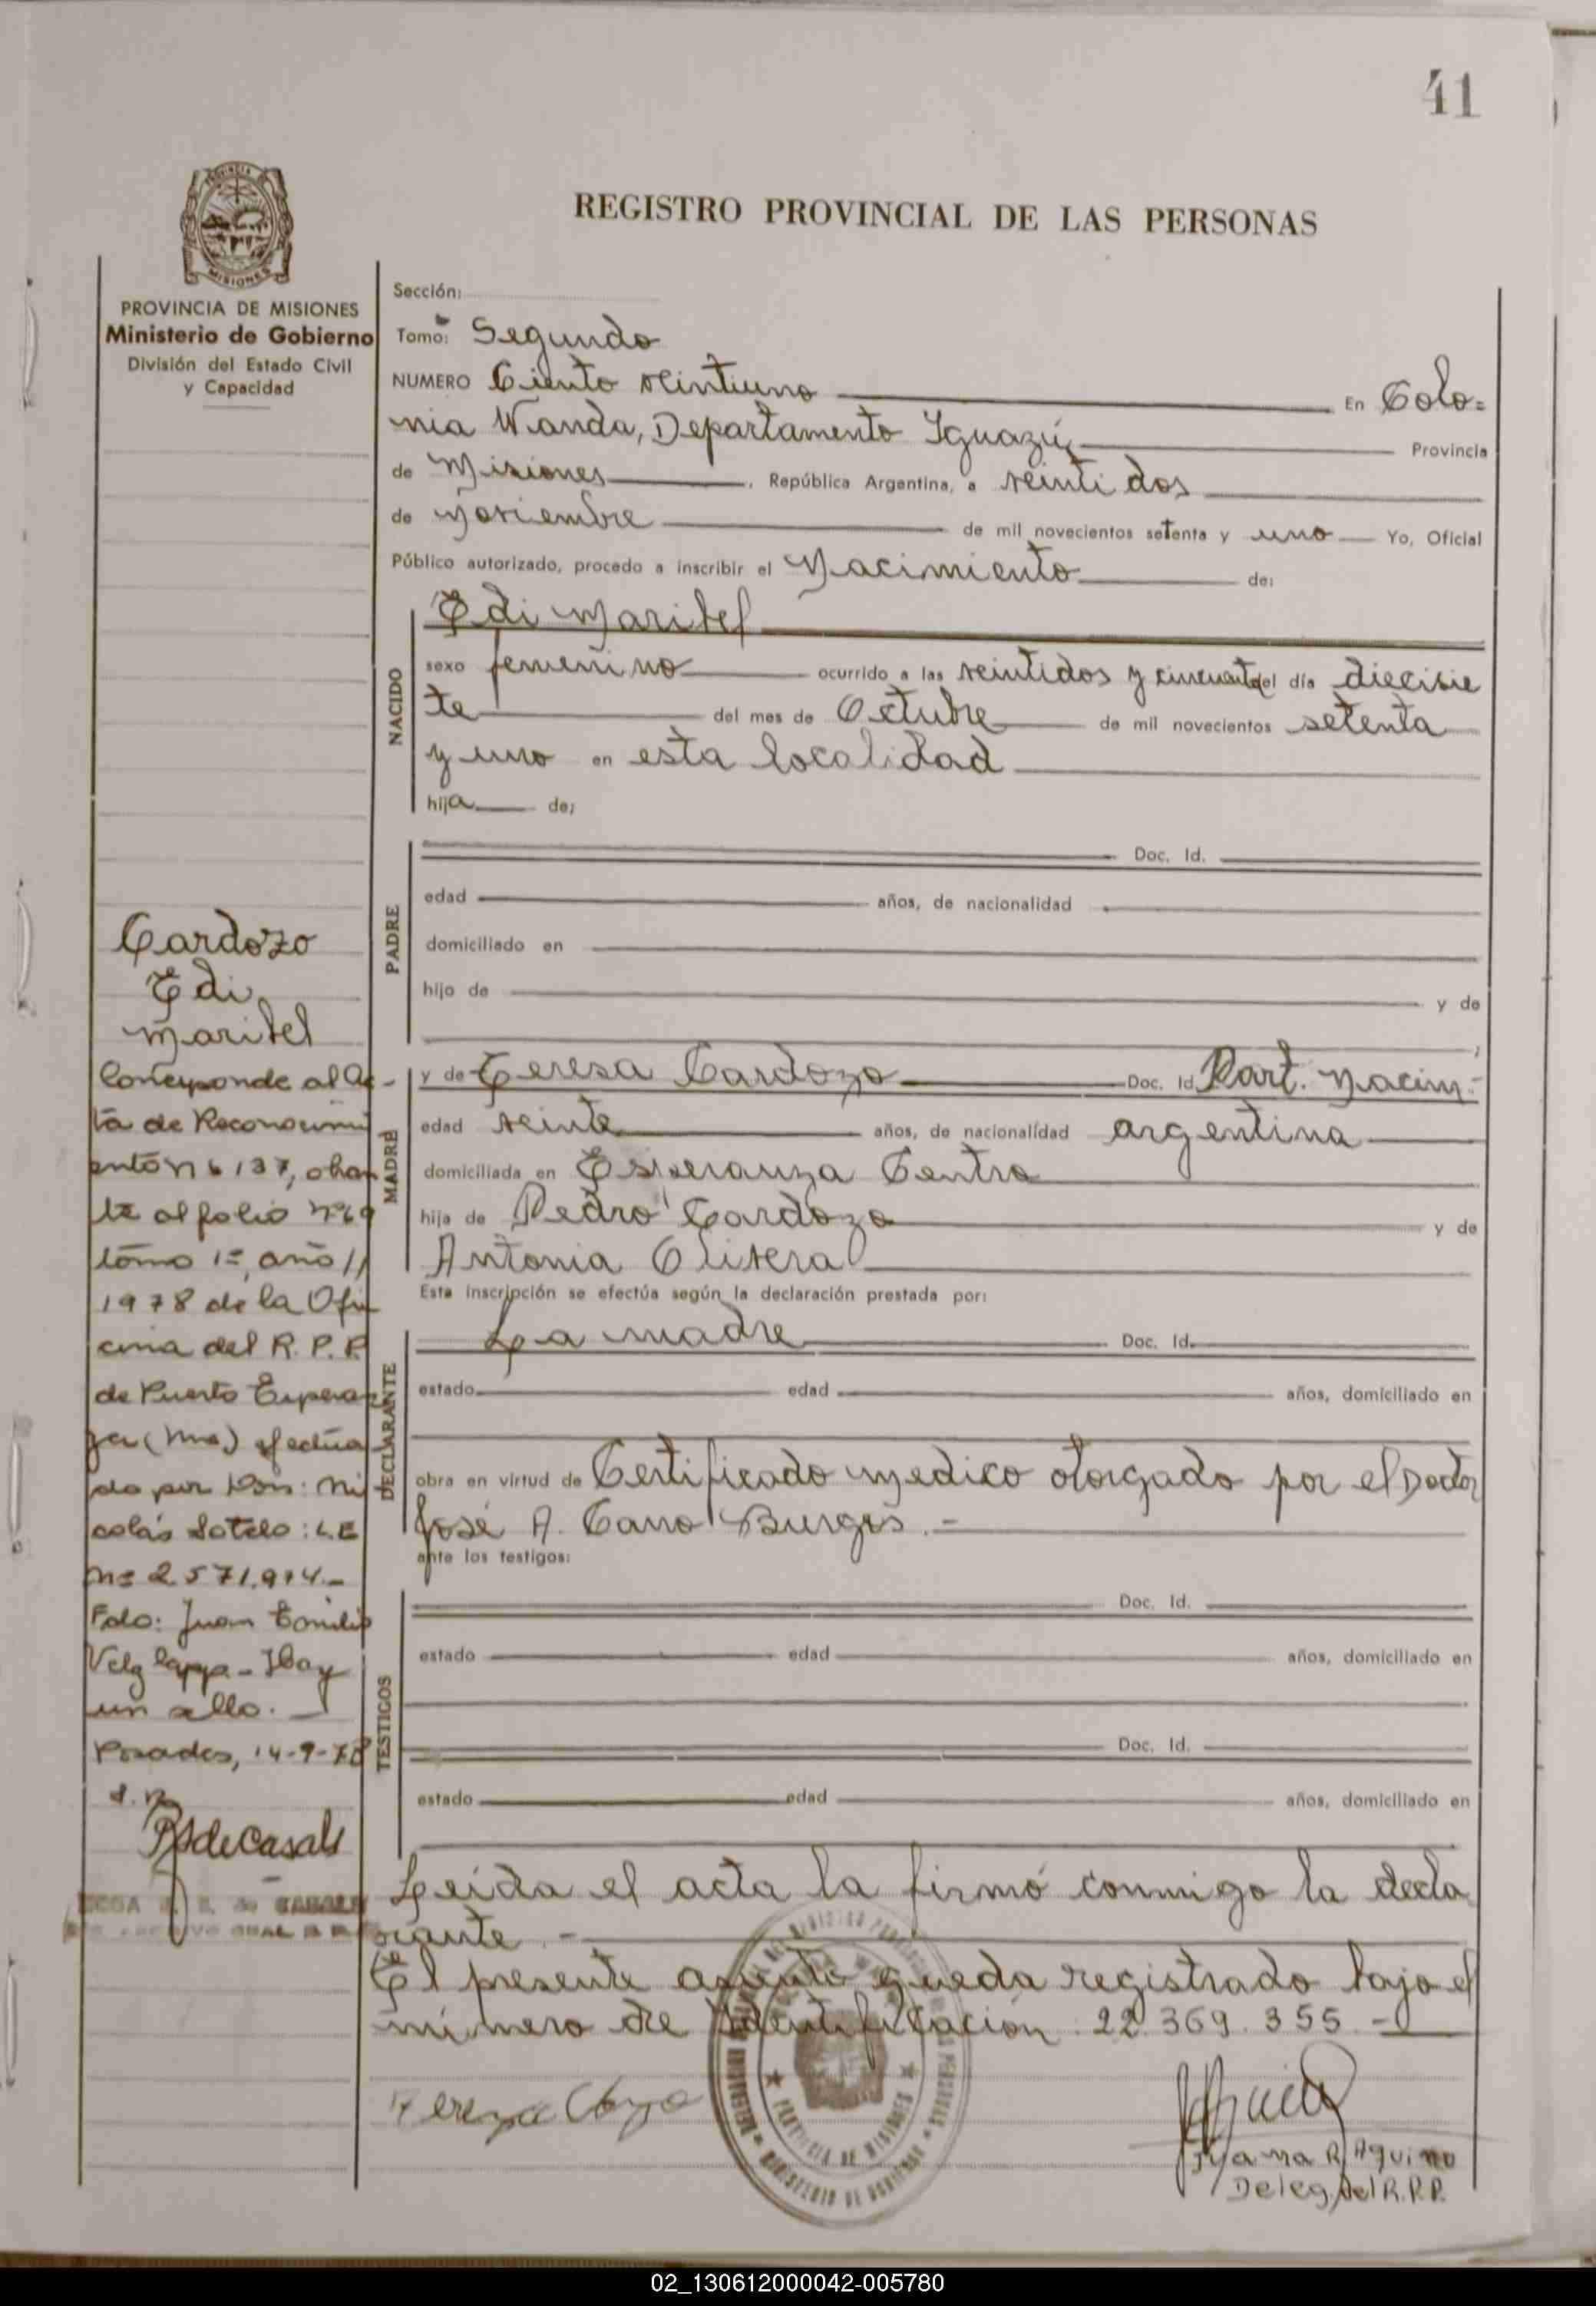 41
REGISTRO PROVINCIAL DE LAS PERSONAS
PROVINCIA DE MISIONES
Ministerio de Gobierno
División del Estado Civil
y Capacidad
Sección:
Tomo: Segundo
NUMERO Ciento veintiuno En Colo=
nia Wanda, Departamento Iguazú Provincia
de Misiones, República Argentina, a veinti dos
de Noviembre de mil novecientos setenta y uno Yo, Oficial
Público autorizado, procedo a inscribir el Nacimiento de:
NACIDO
Edi Maribel
sexo femenino ocurrido a las veintidos y cincuenta del día diecisie
te del mes de Octubre de mil novecientos setenta
y uno en esta localidad
hija de:
PADRE
Doc. Id.
edad años, de nacionalidad
domiciliado en
hijo de y de
MADRE
y de Teresa Cardozo Doc. Id. Part. Nacim.
edad veinte años, de nacionalidad argentina
domiciliada en Esperanza Centro
hija de Pedro Cardozo y de
Antonia Olivera
Esta inscripción se efectúa según la declaración prestada por:
DECLARANTE
La madre Doc. Id.
estado edad años, domiciliado en
obra en virtud de Certificado medico otorgado por el Doctor
José A. Cano Burgos.-
ante los testigos:
TESTIGOS
Doc. Id.
estado edad años, domiciliado en
Doc. Id.
estado edad años, domiciliado en
Leida el acta la firmó conmigo la decla
rante.-
El presente asiento queda registrado bajo el
número de Identificación: 22.369.355.-
Juana R. Aquino
Deleg. del R.P.P.
Cardozo
Edi
Maribel
Corresponde al Ac-
ta de Reconocimi
ento Nº 137, obran
te al folio Nº 69
tomo 1º, año //
1978 de la Ofi
cina del R. P. P.
de Puerto Esperan
za (Mnes) efectua
do por Don: Ni
colás Sotelo: L.E
Nº 2.571.914.-
Fdo: Juan Emilio
Hay
un sello.
Posadas, 14-9-78
PROVINCIA DE MISIONES
MINISTERIO DE GOBIERNO
02_130612000042-005780